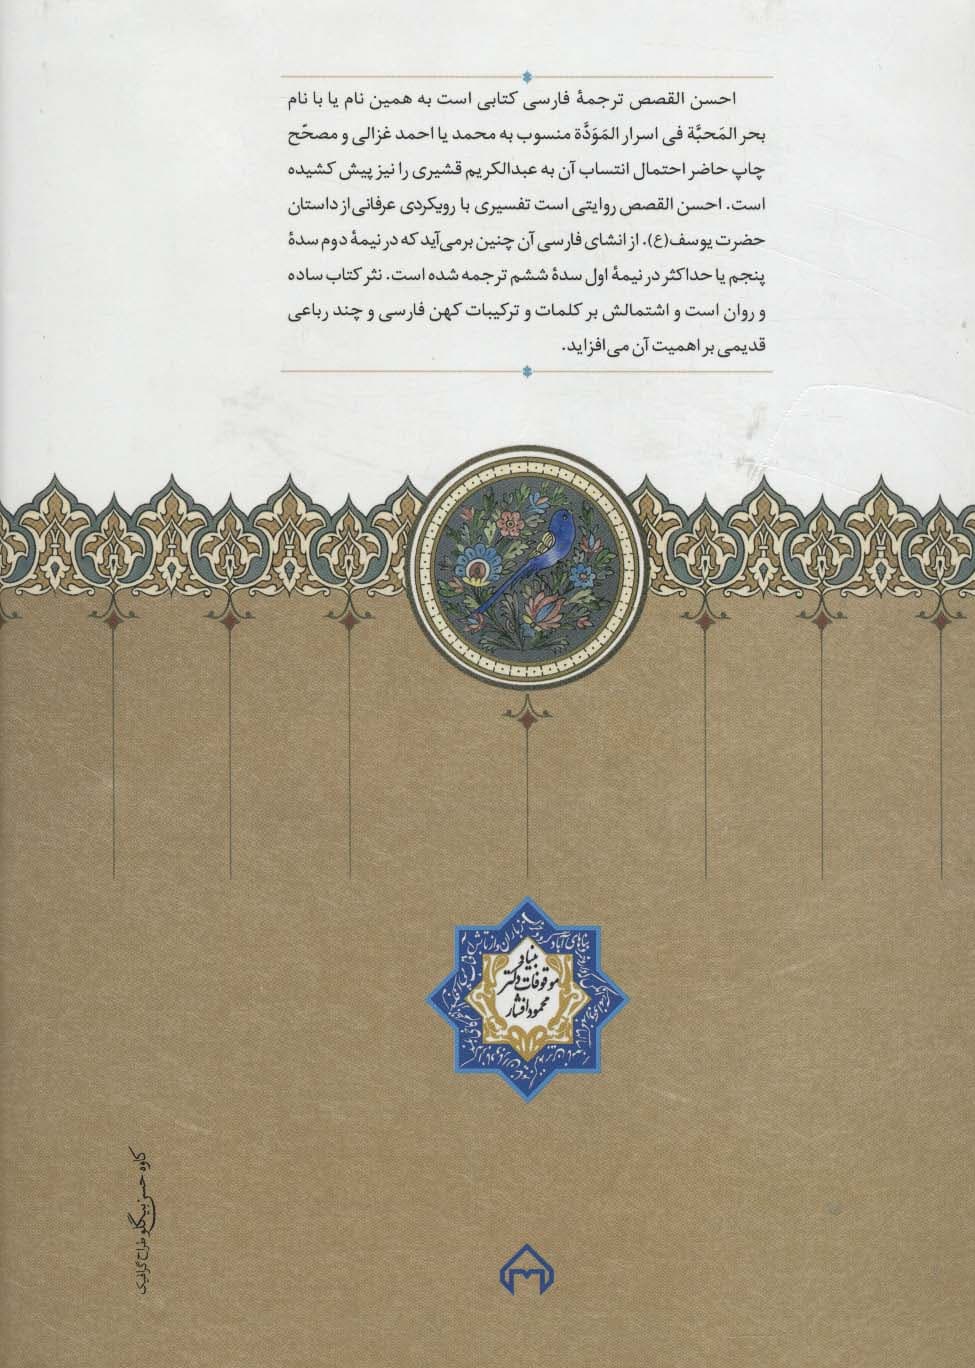 احسن القصص ترجمهٔ فارسی کتابی است به همین نام یا با نام
بحر المَحبَّة فی اسرار المَوَدَّة منسوب به محمد یا احمد غزالی و مصحّح
چاپ حاضر احتمال انتساب آن به عبدالکریم قشیری را نیز پیش کشیده
است. احسن القصص روایتی است تفسیری با رویکردی عرفانی از داستان
حضرت یوسف(ع). از انشای فارسی آن چنین برمی‌آید که در نیمهٔ دوم سدهٔ
پنجم یا حداکثر در نیمهٔ اول سدهٔ ششم ترجمه شده است. نثر کتاب ساده
و روان است و اشتمالش بر کلمات و ترکیبات کهن فارسی و چند رباعی
قدیمی بر اهمیت آن می‌افزاید.
بناهای آباد گردد خراب
ز باران و از تابش آفتاب
بنیاد
موقوفات دکتر
محمود افشار
کاوه حسن بیگلو طراح گرافیک